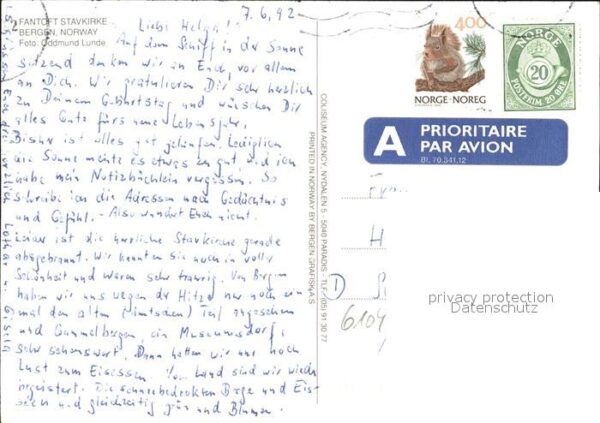 FANTOFT STAVKIRKE
BERGEN, NORWAY
Foto: Oddmund Lunde
7.6.92
Liebe Helga!
Auf dem Schiff in der Sonne
sitzend denken wir an Euch, vor allem
an Dich. Wir gratulieren Dir sehr herzlich
zu Deinem Geburtstag und wünschen Dir
alles Gute fürs neue Lebensjahr.
Bisher ist alles gut gelaufen. Lediglich
die Sonne meinte es etwas zu gut und ich
habe mein Notizbüchlein vergessen. So
schreibe ich die Adressen nach Gedächtnis
und Gefühl. - Also wundert Euch nicht.
Leider ist die herrliche Stavkirche gerade
abgebrannt. Wir kannten sie noch in voller
Schönheit und waren sehr traurig. Von Bergen
haben wir uns wegen der Hitze nur noch ein-
mal den alten (deutschen) Teil angesehen
und Gammelbergen, ein Museumsdorf,
sehr sehenswert. Dann hatten wir nur noch
Lust zum Eisessen. Vom Land sind wir wieder
begeistert. Die schneebedeckten Berge und Eis-
seen und gleichzeitig grün und Blumen.
Euch Lothar + Gisela
COLISEUM AGENCY, NYDALEN 5 - 5040 PARADIS - TLF. (05) 91 30 77
PRINTED IN NORWAY BY BERGEN GRAFISK A.S
400
NORGE-NOREG
NORGE
20
POSTFRIM. 20 ØRE
A PRIORITAIRE
PAR AVION
Bl. 70.341.12
H
D
6104
privacy protection
Datenschutz